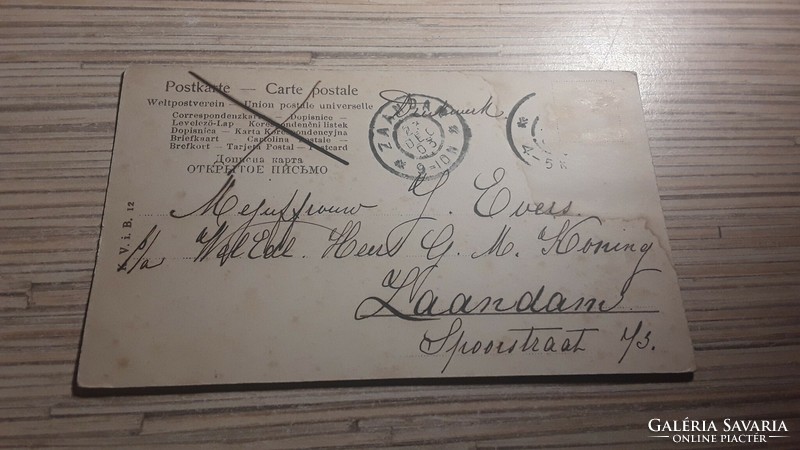 Postkarte — Carte postale
Weltpostverein — Union postale universelle
Correspondenzkarte — Dopisnice —
Levelező-Lap — Korespondenční lístek
Dopisnica — Karta Korespondencyjna
Briefkaart — Cartolina postale —
Brefkort — Tarjeta Postal — Postcard
Дописна карта
ОТКРЫТОЕ ПИСЬМО
Drukwerk
ZAANDAM
DEC
03
9-10N
Mejuffrouw G. Evers.
p/a WelEd. Heer G. M. Koning
Zaandam
Spoorstraat
V. i. B. 12
GALÉRIA SAVARIA
ONLINE PIACTÉR